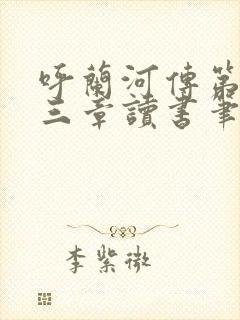 呼蘭河傳第
三章讀書筆
李紫微